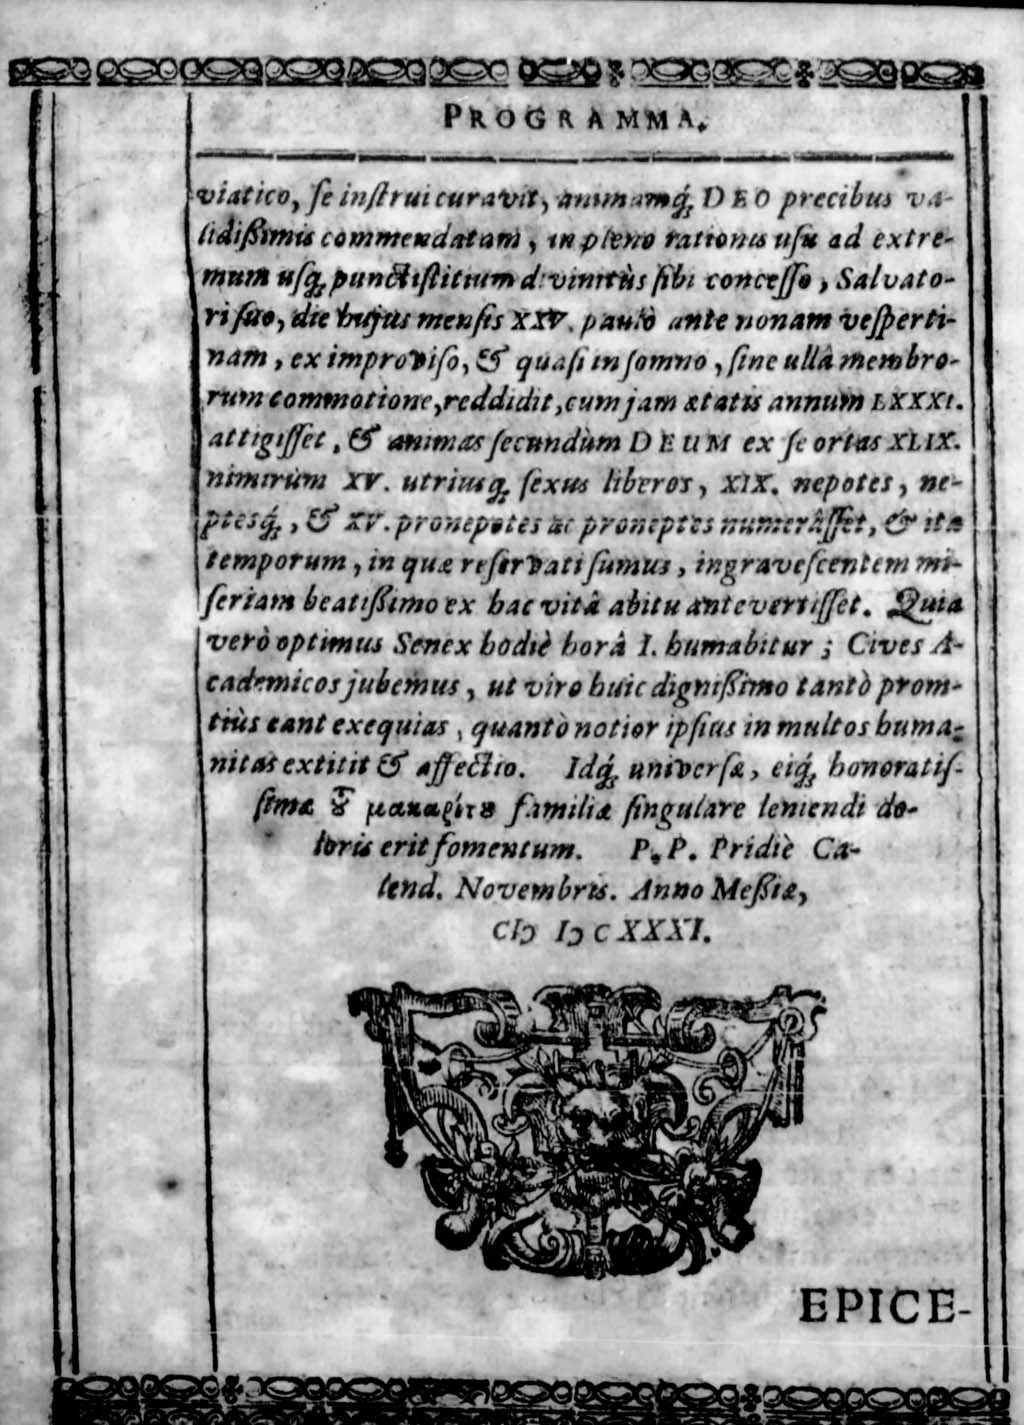 PROGRAMMA.
viatico, se instrui curavit, animamq́; DEO precibus va-
lidißimis commendatam, in pleno rationis usu ad extre-
mum usq; punctistitium divinitùs sibi concesso, Salvato-
ri suo, die hujus mensis XXV. paulò ante nonam vesperti-
nam, ex improviso, & quasi in somno, sine ullâ membro-
rum commotione, reddidit, cum jam ætatis annum LXXXI.
attigisset, & animas secundùm DEUM ex se ortas XLIX.
nimirùm XV. utriusq; sexus liberos, XIX. nepotes, ne-
ptesq́;, & XV. pronepotes ac proneptes numerâsset, & ita
temporum, in quæ reservati sumus, ingravescentem mi-
seriam beatißimo ex hac vitâ abitu antevertisset. Quia
verò optimus Senex hodiè horâ I. humabitur; Cives A-
cademicos jubemus, ut viro huic dignißimo tantò prom-
tiùs eant exequias, quantò notior ipsius in multos huma-
nitas extitit & affectio. Idq́; universæ, eiq́; honoratis-
simæ ȣ͂ μακαρίτȣ familiæ singulare leniendi do-
loris erit fomentum. P. P. Pridiè Ca-
lend. Novembris. Anno Meßiæ,
CIↃ IↃ C XXXI.
EPICE-